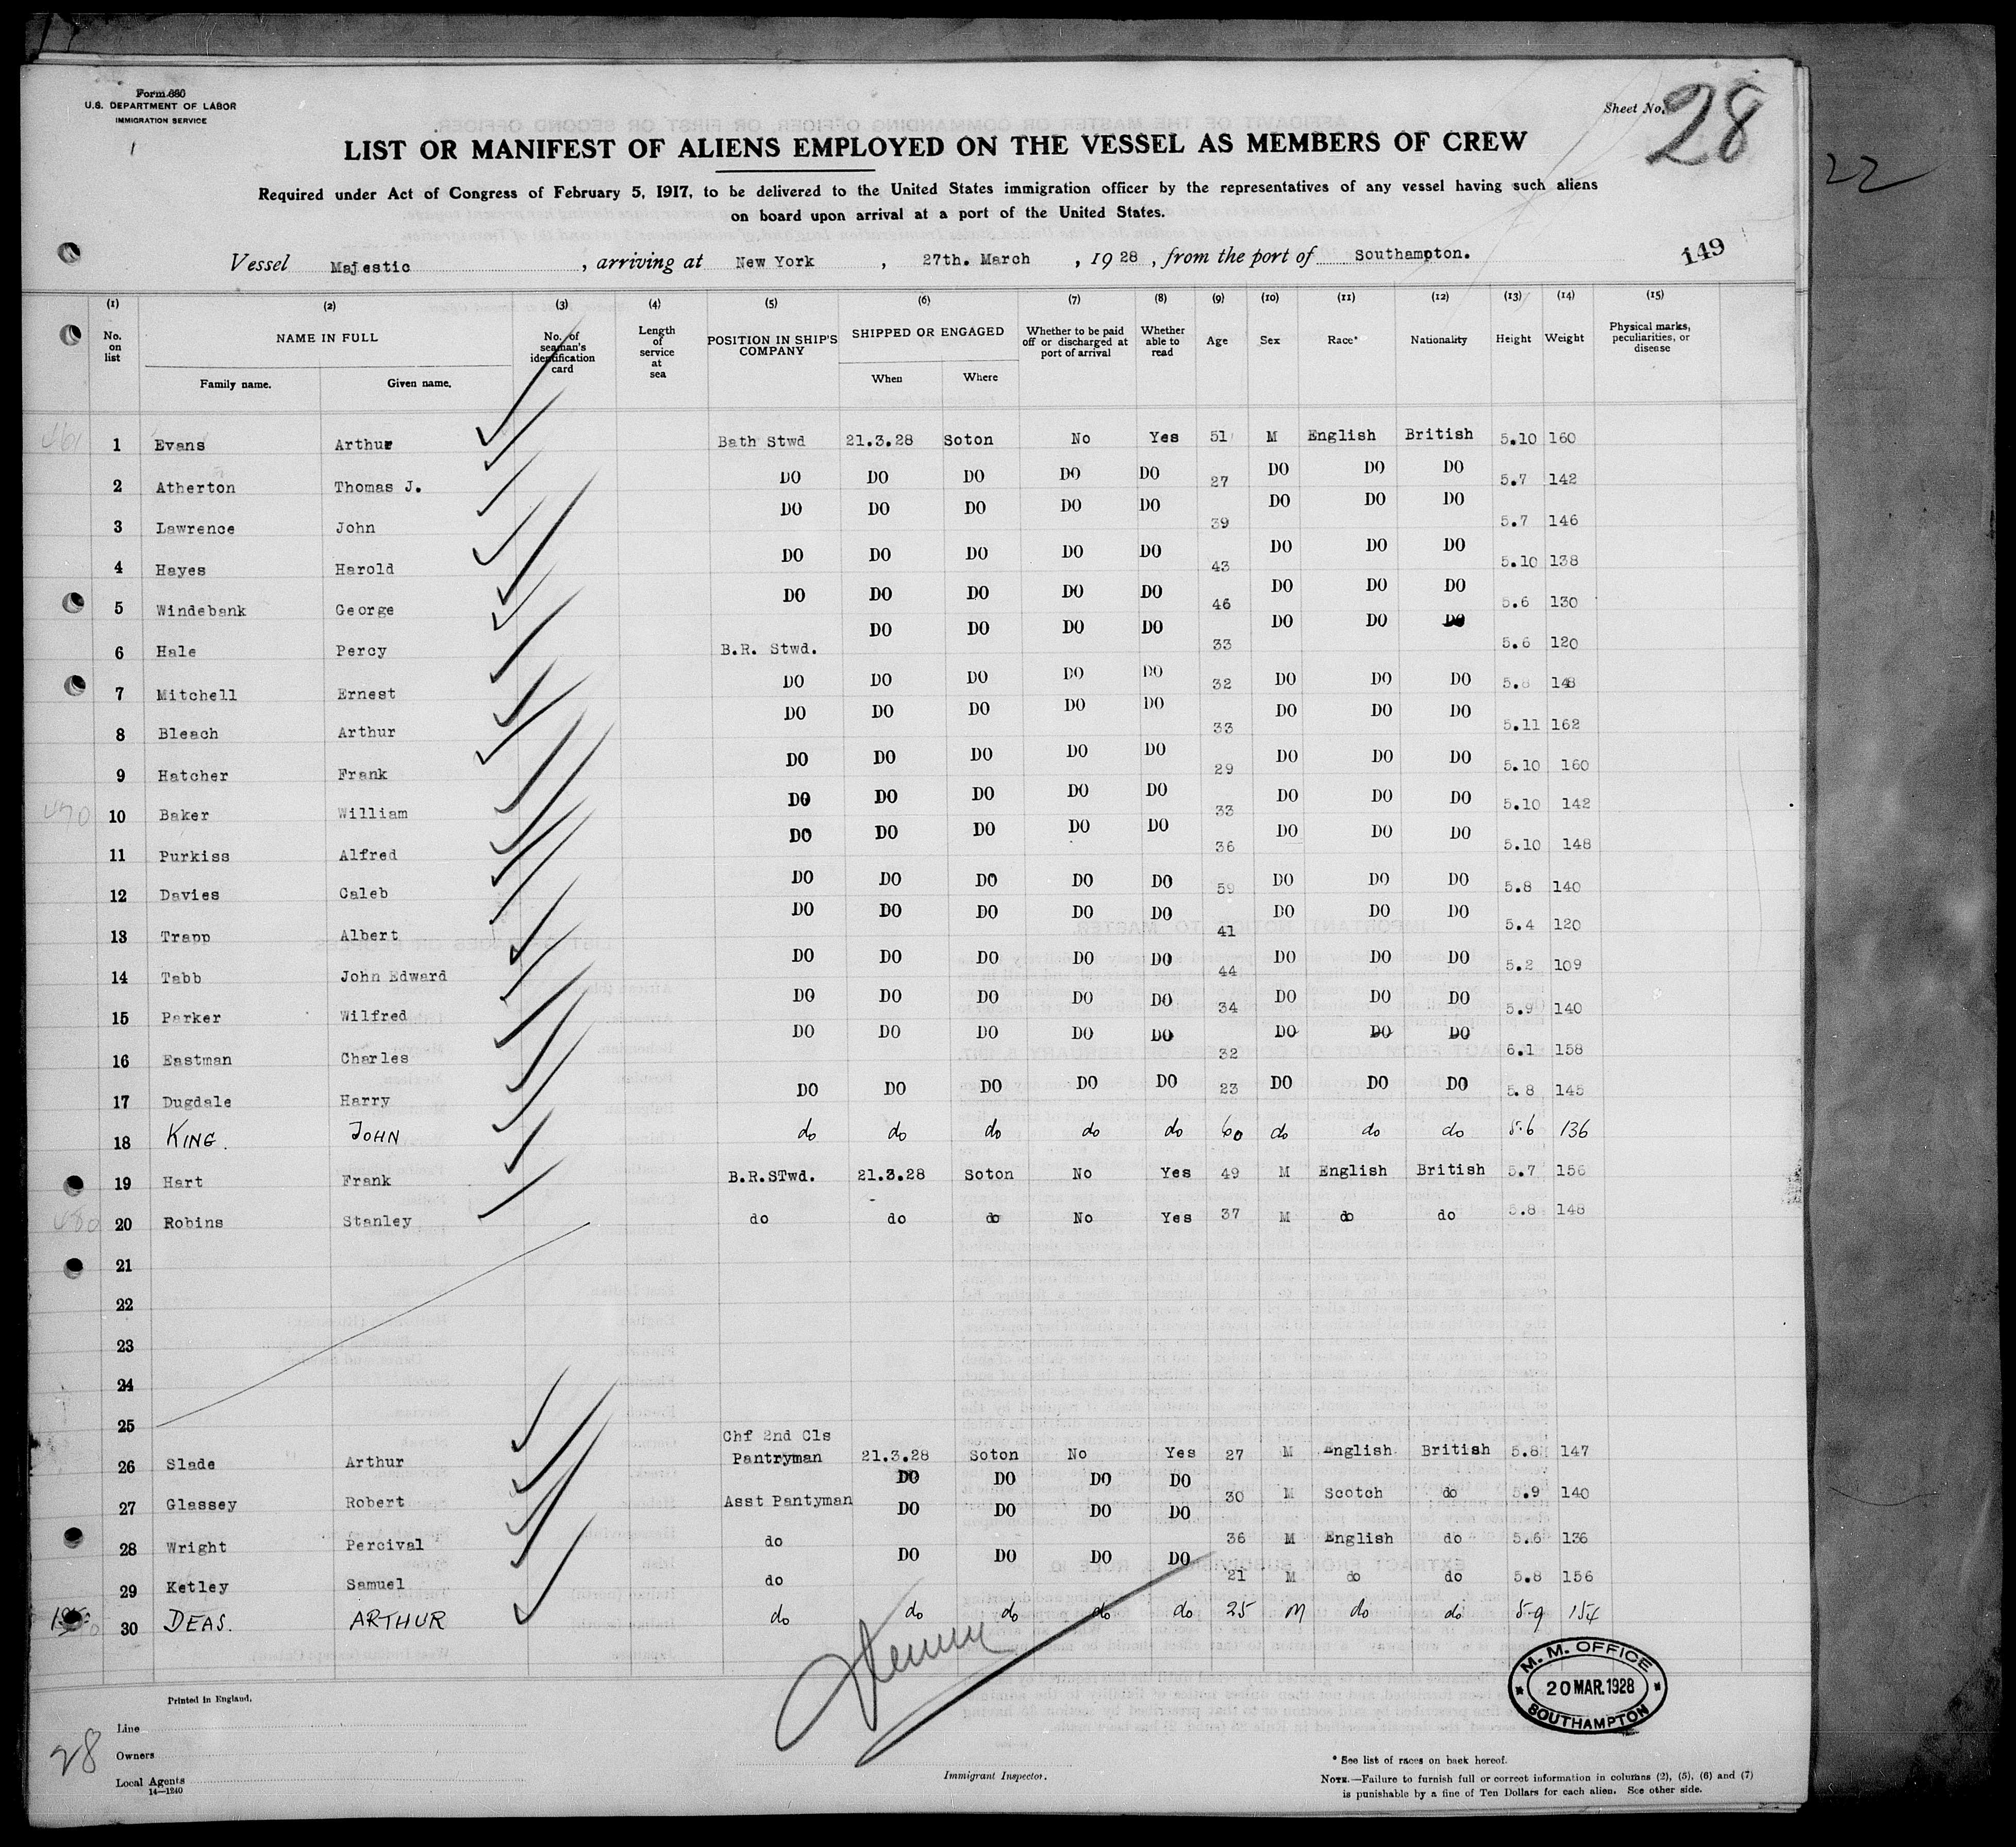 Form 680
U.S. DEPARTMENT OF LABOR
IMMIGRATION SERVICE
Sheet No. 28
22
LIST OR MANIFEST OF ALIENS EMPLOYED ON THE VESSEL AS MEMBERS OF CREW
Required under Act of Congress of February 5, 1917, to be delivered to the United States immigration officer by the representatives of any vessel having such aliens
on board upon arrival at a port of the United States.
Vessel Majestic, arriving at New York, 27th. March, 1928, from the port of Southampton.
149
(1) (2) (3) (4) (5) (6) (7) (8) (9) (10) (11) (12) (13) (14) (15)
No. on list NAME IN FULL Family name. Given name. No. of seaman's identification card Length of service at sea POSITION IN SHIP'S COMPANY SHIPPED OR ENGAGED When Where Whether to be paid off or discharged at port of arrival Whether able to read Age Sex Race* Nationality Height Weight Physical marks, peculiarities, or disease
461 1 Evans Arthur Bath Stwd 21.3.28 Soton No Yes 51 M English British 5.10 160
2 Atherton Thomas J. DO DO DO DO DO 27 DO DO DO 5.7 142
3 Lawrence John DO DO DO DO DO 39 DO DO DO 5.7 146
4 Hayes Harold DO DO DO DO DO 43 DO DO DO 5.10 138
5 Windebank George DO DO DO DO DO 46 DO DO DO 5.6 130
6 Hale Percy B.R. Stwd. DO DO DO DO 33 DO DO DO 5.6 120
7 Mitchell Ernest DO DO DO DO DO 32 DO DO DO 5.8 148
8 Bleach Arthur DO DO DO DO DO 33 DO DO DO 5.11 162
9 Hatcher Frank DO DO DO DO DO 29 DO DO DO 5.10 160
470 10 Baker William DO DO DO DO DO 33 DO DO DO 5.10 142
11 Purkiss Alfred DO DO DO DO DO 36 DO DO DO 5.10 148
12 Davies Caleb DO DO DO DO DO 59 DO DO DO 5.8 140
13 Trapp Albert DO DO DO DO DO 41 DO DO DO 5.4 120
14 Tabb John Edward DO DO DO DO DO 44 DO DO DO 5.2 109
15 Parker Wilfred DO DO DO DO DO 34 DO DO DO 5.9 140
16 Eastman Charles DO DO DO DO DO 32 DO DO DO 6.1 158
17 Dugdale Harry DO DO DO DO DO 23 DO DO DO 5.8 145
18 KING. JOHN do do do do do 60 do do do 5.6 136
19 Hart Frank B.R.STwd. 21.3.28 Soton No Yes 49 M English British 5.7 156
480 20 Robins Stanley do do do No Yes 37 M do do 5.8 148
21
22
23
24
25
26 Slade Arthur Chf 2nd Cls Pantryman 21.3.28 Soton No Yes 27 M English British 5.8 147
27 Glassey Robert Asst Pantyman DO DO DO DO 30 M Scotch do 5.9 140
28 Wright Percival do DO DO DO DO 36 M English do 5.6 136
29 Ketley Samuel do DO DO DO DO 21 M do do 5.8 156
30 DEAS. ARTHUR do do do do do 25 M do do 5.9 154
M. M. OFFICE
20 MAR. 1928
SOUTHAMPTON
Printed in England.
28
Line
Owners
Local Agents
14—1240
Immigrant Inspector.
* See list of races on back hereof.
NOTE.—Failure to furnish full or correct information in columns (2), (5), (6) and (7)
is punishable by a fine of Ten Dollars for each alien. See other side.